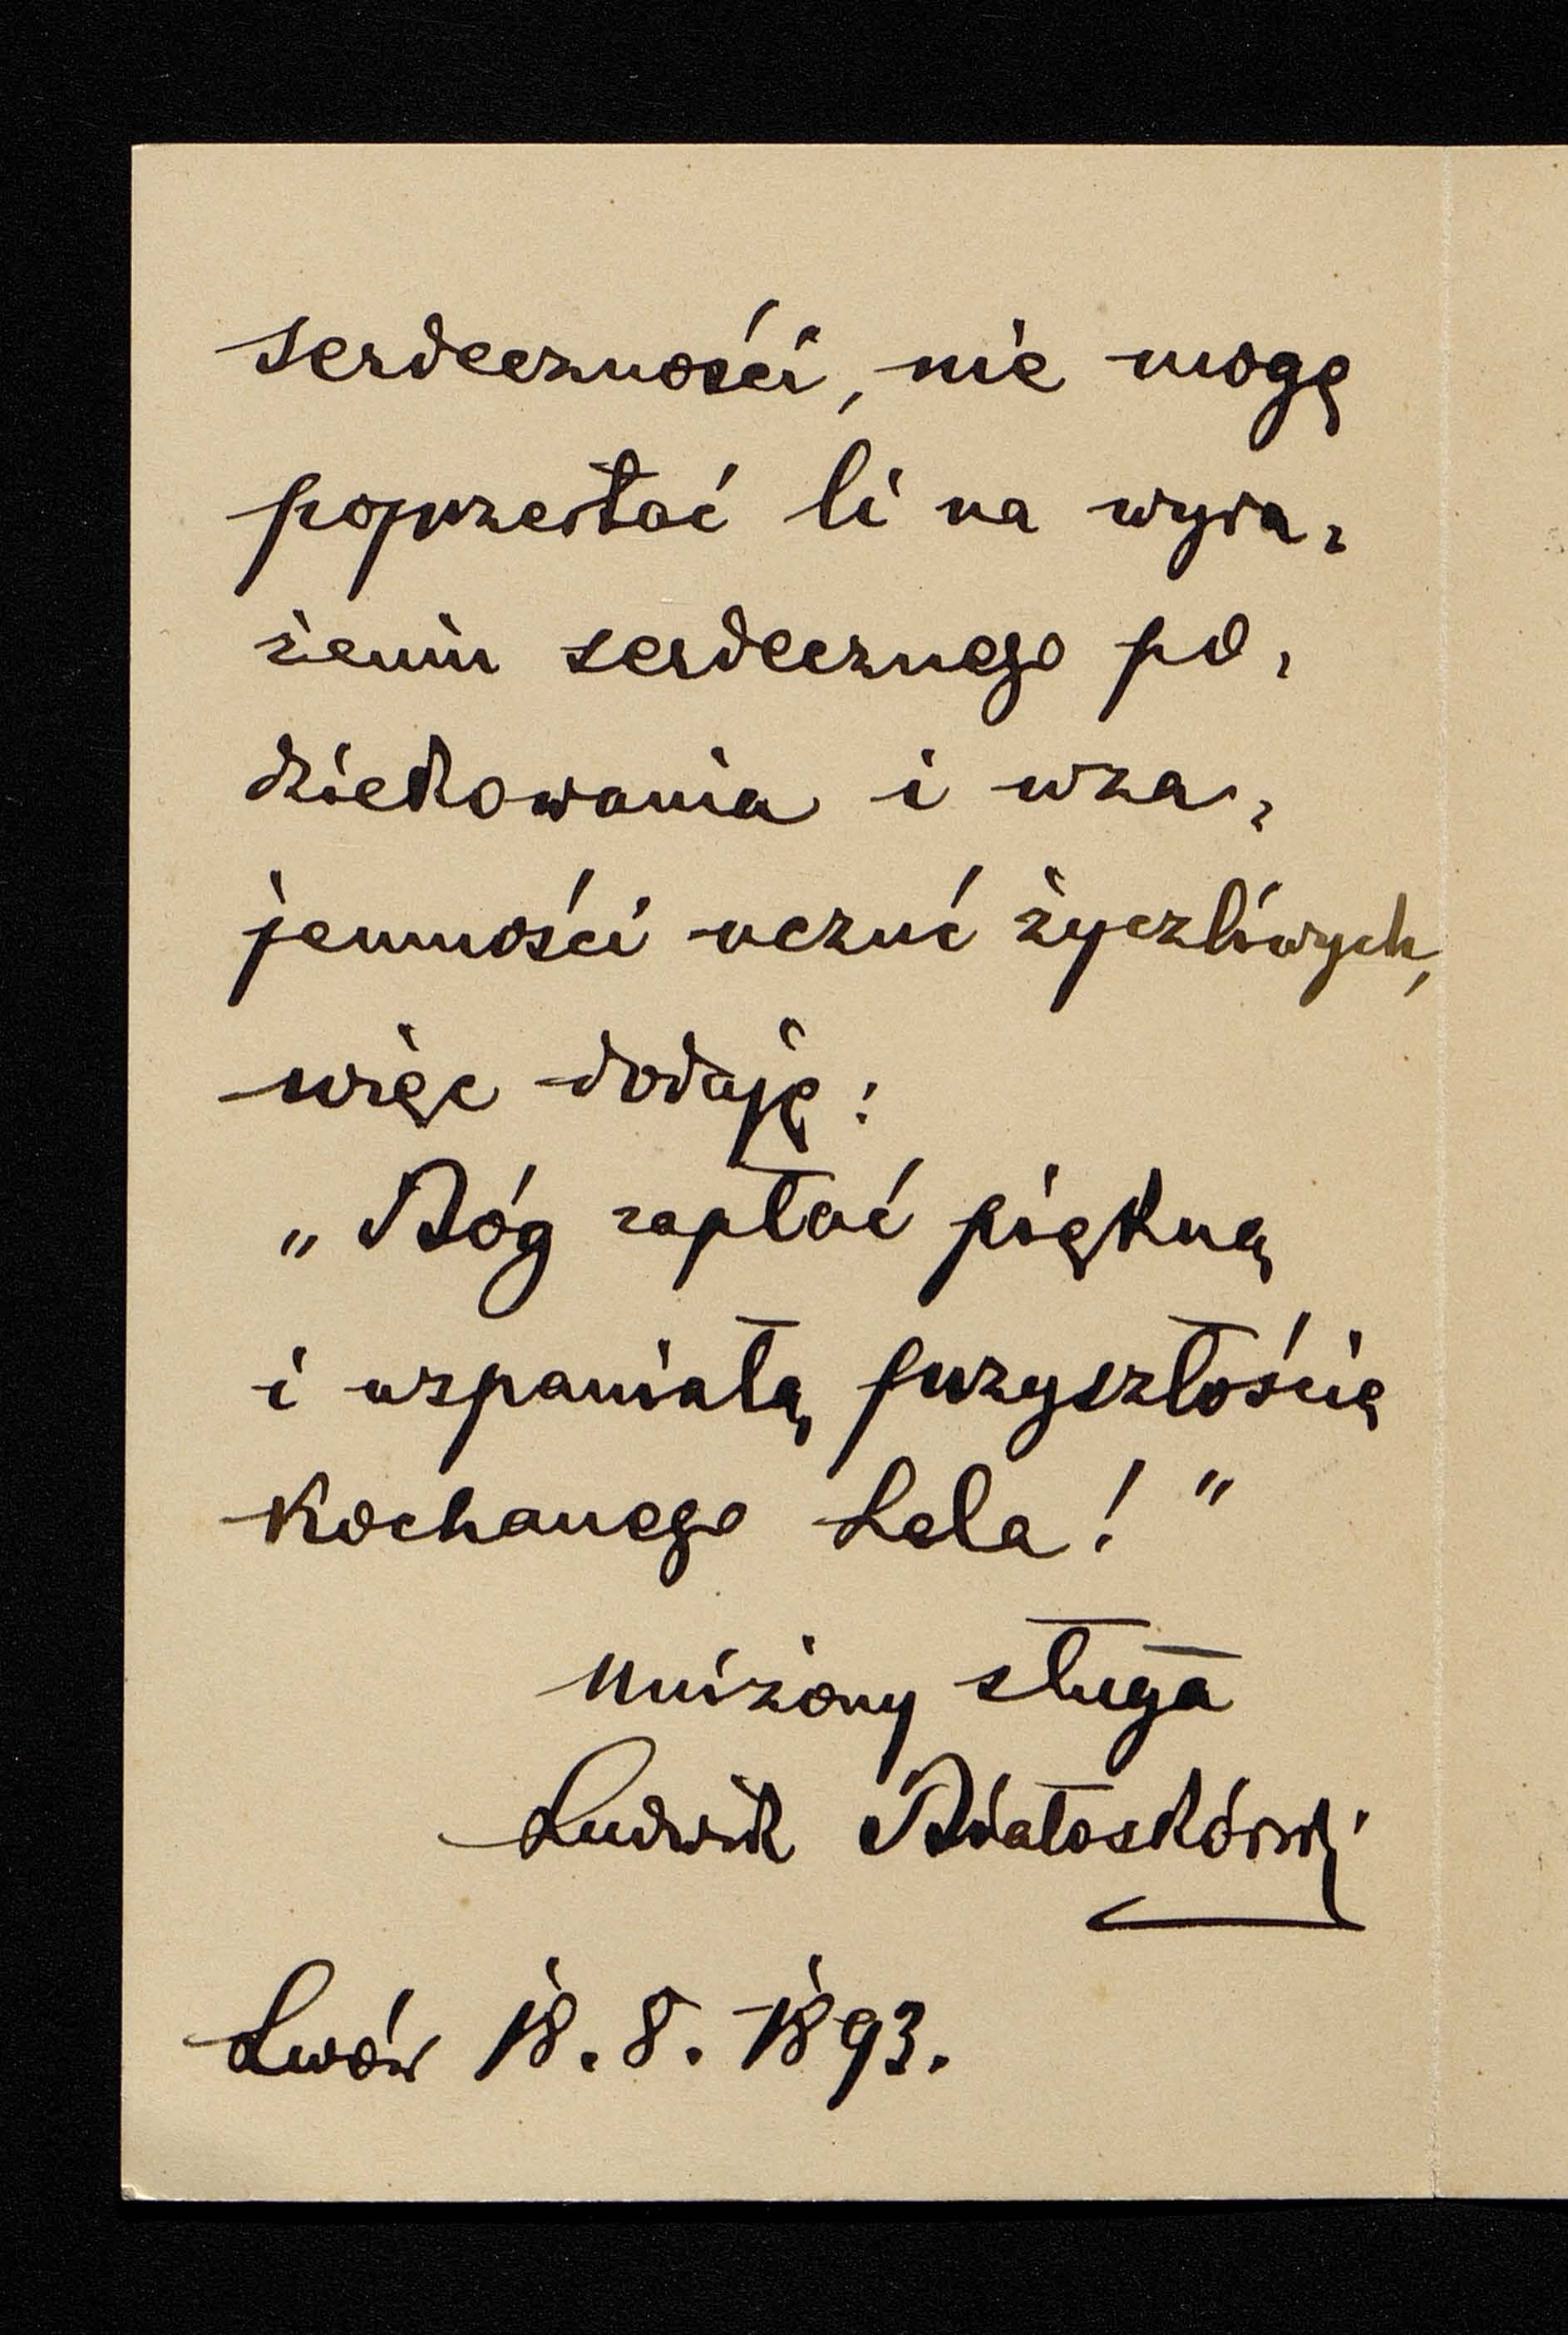 serdeczności, nie mogę
poprzestać li na wyra-
żeniu serdecznego po-
dziekowania i wza-
jemności uczuć życzliwych,
więc dodaję:
„Bóg zapłać piękną
i wspaniałą przyszłością
kochanego Lela!"
Uniżony sługa
Ludwik Białoskórski
Lwów 18. 8. 1893.